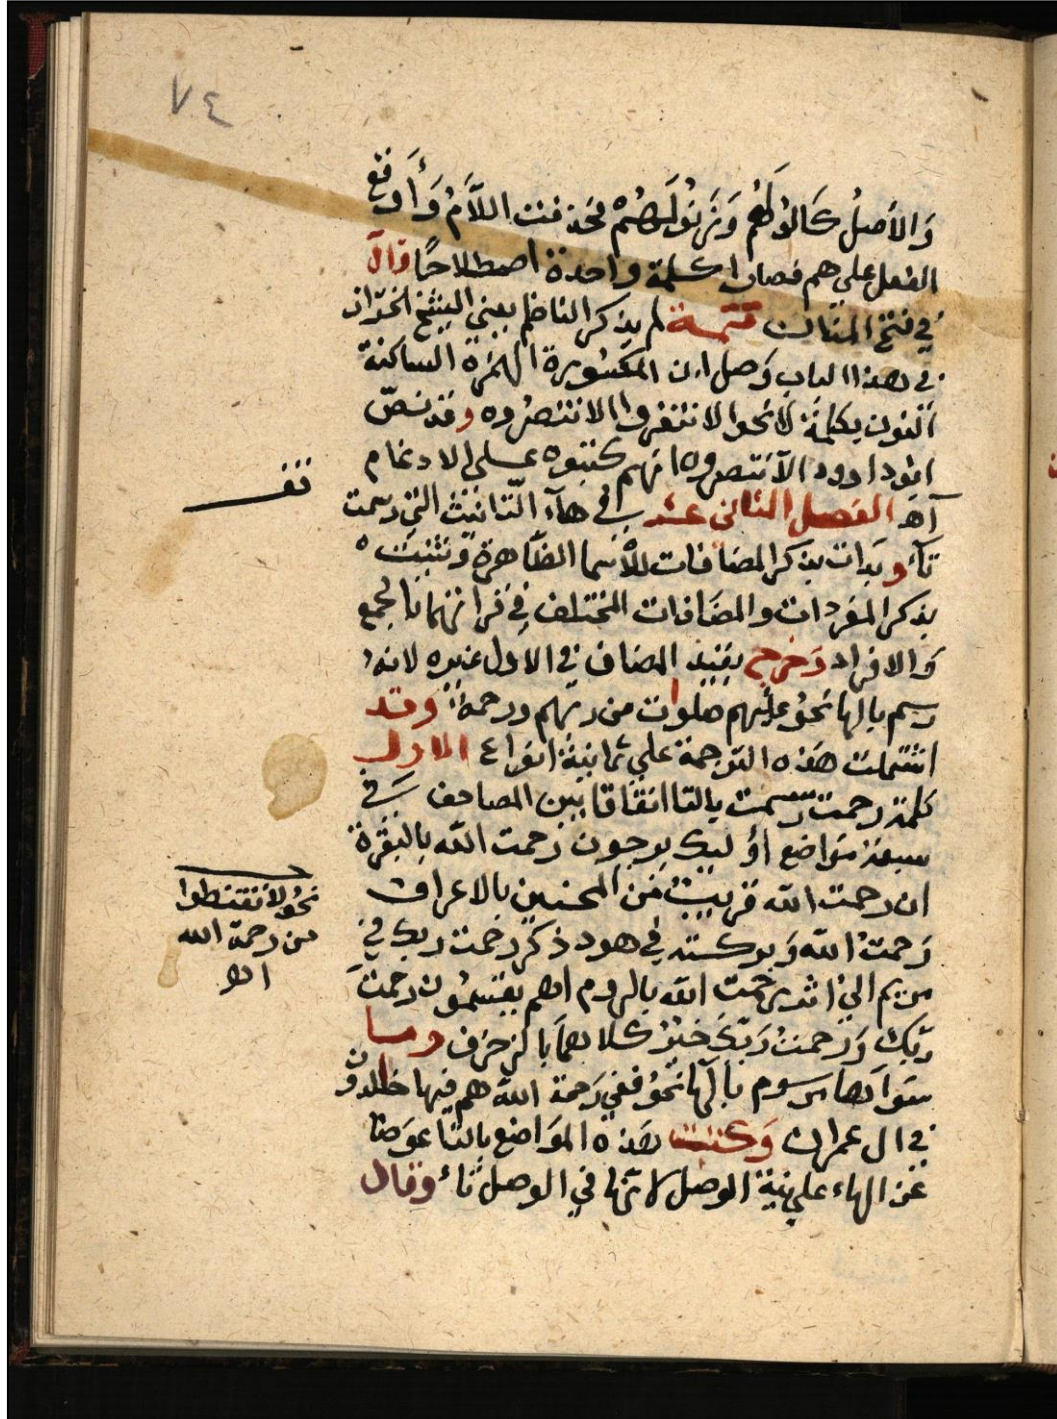 ٧٤
وَالأَصلُ كَالُوْلَهُم وَزَنُوْلَهُمْ فحذفت اللَّامُ وَأَوقع
الفعل علي هم فصارا كلمة واحدة اصطلاحًا قال
في فتح المنان تتمة لم يذكر الناظم يعني الشيخ الخرّاز
في هذا الباب وَصل ان المكسورة الهمزة الساكنة
النون بكلمة لا نحو الا تنفروا الا تنصروه وقد نصّ
ابو داوود الا تنصروه انهم كتبوه على الادغام
آهـ الفصل الثاني عشر في هآء التّانيث التي رسمت
تآءً وبدات بذكر المضافات للأسما الظّاهرة وثنيت
بذكر المفردات والمضَافات المختلف فِي قراتها بالجمع
وَالافراد وَخرج بقيد المضاف في الاول غيره لانه
رسم بالها نحوُ عليهم صلوات من ربهم ورحمة وقد
اشتملت هَذه الترجمة علي ثمانية انواع الاول
كلمة رحمت رسمت بالتا اتفاقا بين المصاحف في
سبعة مواضع أوليك يرجون رَحمت الله بالبقرة
ان رحمت الله قريبٌ مّن المحسنين بالاعراف
رَحمتُ الله وَبركته في هود ذكر رحمت ربك في
مريم الي اثر رحمت الله بالروم اهم يقسمُون رحمتَ
ربّك وَرَحمتُ رَبّكَ خيْرٌ كلاهمَا بالزخرف وما
سَواهَا مرسوم بالها نحوُ ففي رَحمة الله هم فيها خالدون
في ال عمران وَكتبت هَذه المَواضع بالتا عوَضا
عَن الهاء علي نية الوصل لانّها في الوصل تاءٌ وقال
قف
نحوُ لا تقنطوا
من رحمة الله